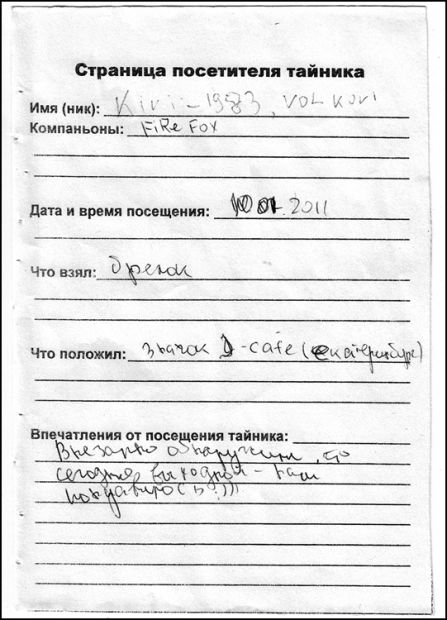 Страница посетителя тайника
Имя (ник): Kirii-1983, VOLKOVI
Компаньоны: FiRe Fox
Дата и время посещения: 10.01.2011
Что взял: брелок
Что положил: значок -cafe (екатеринбург)
Впечатления от посещения тайника:
Внезапно обнаружили, что
сегодня выходной - нам
понравилось!)))